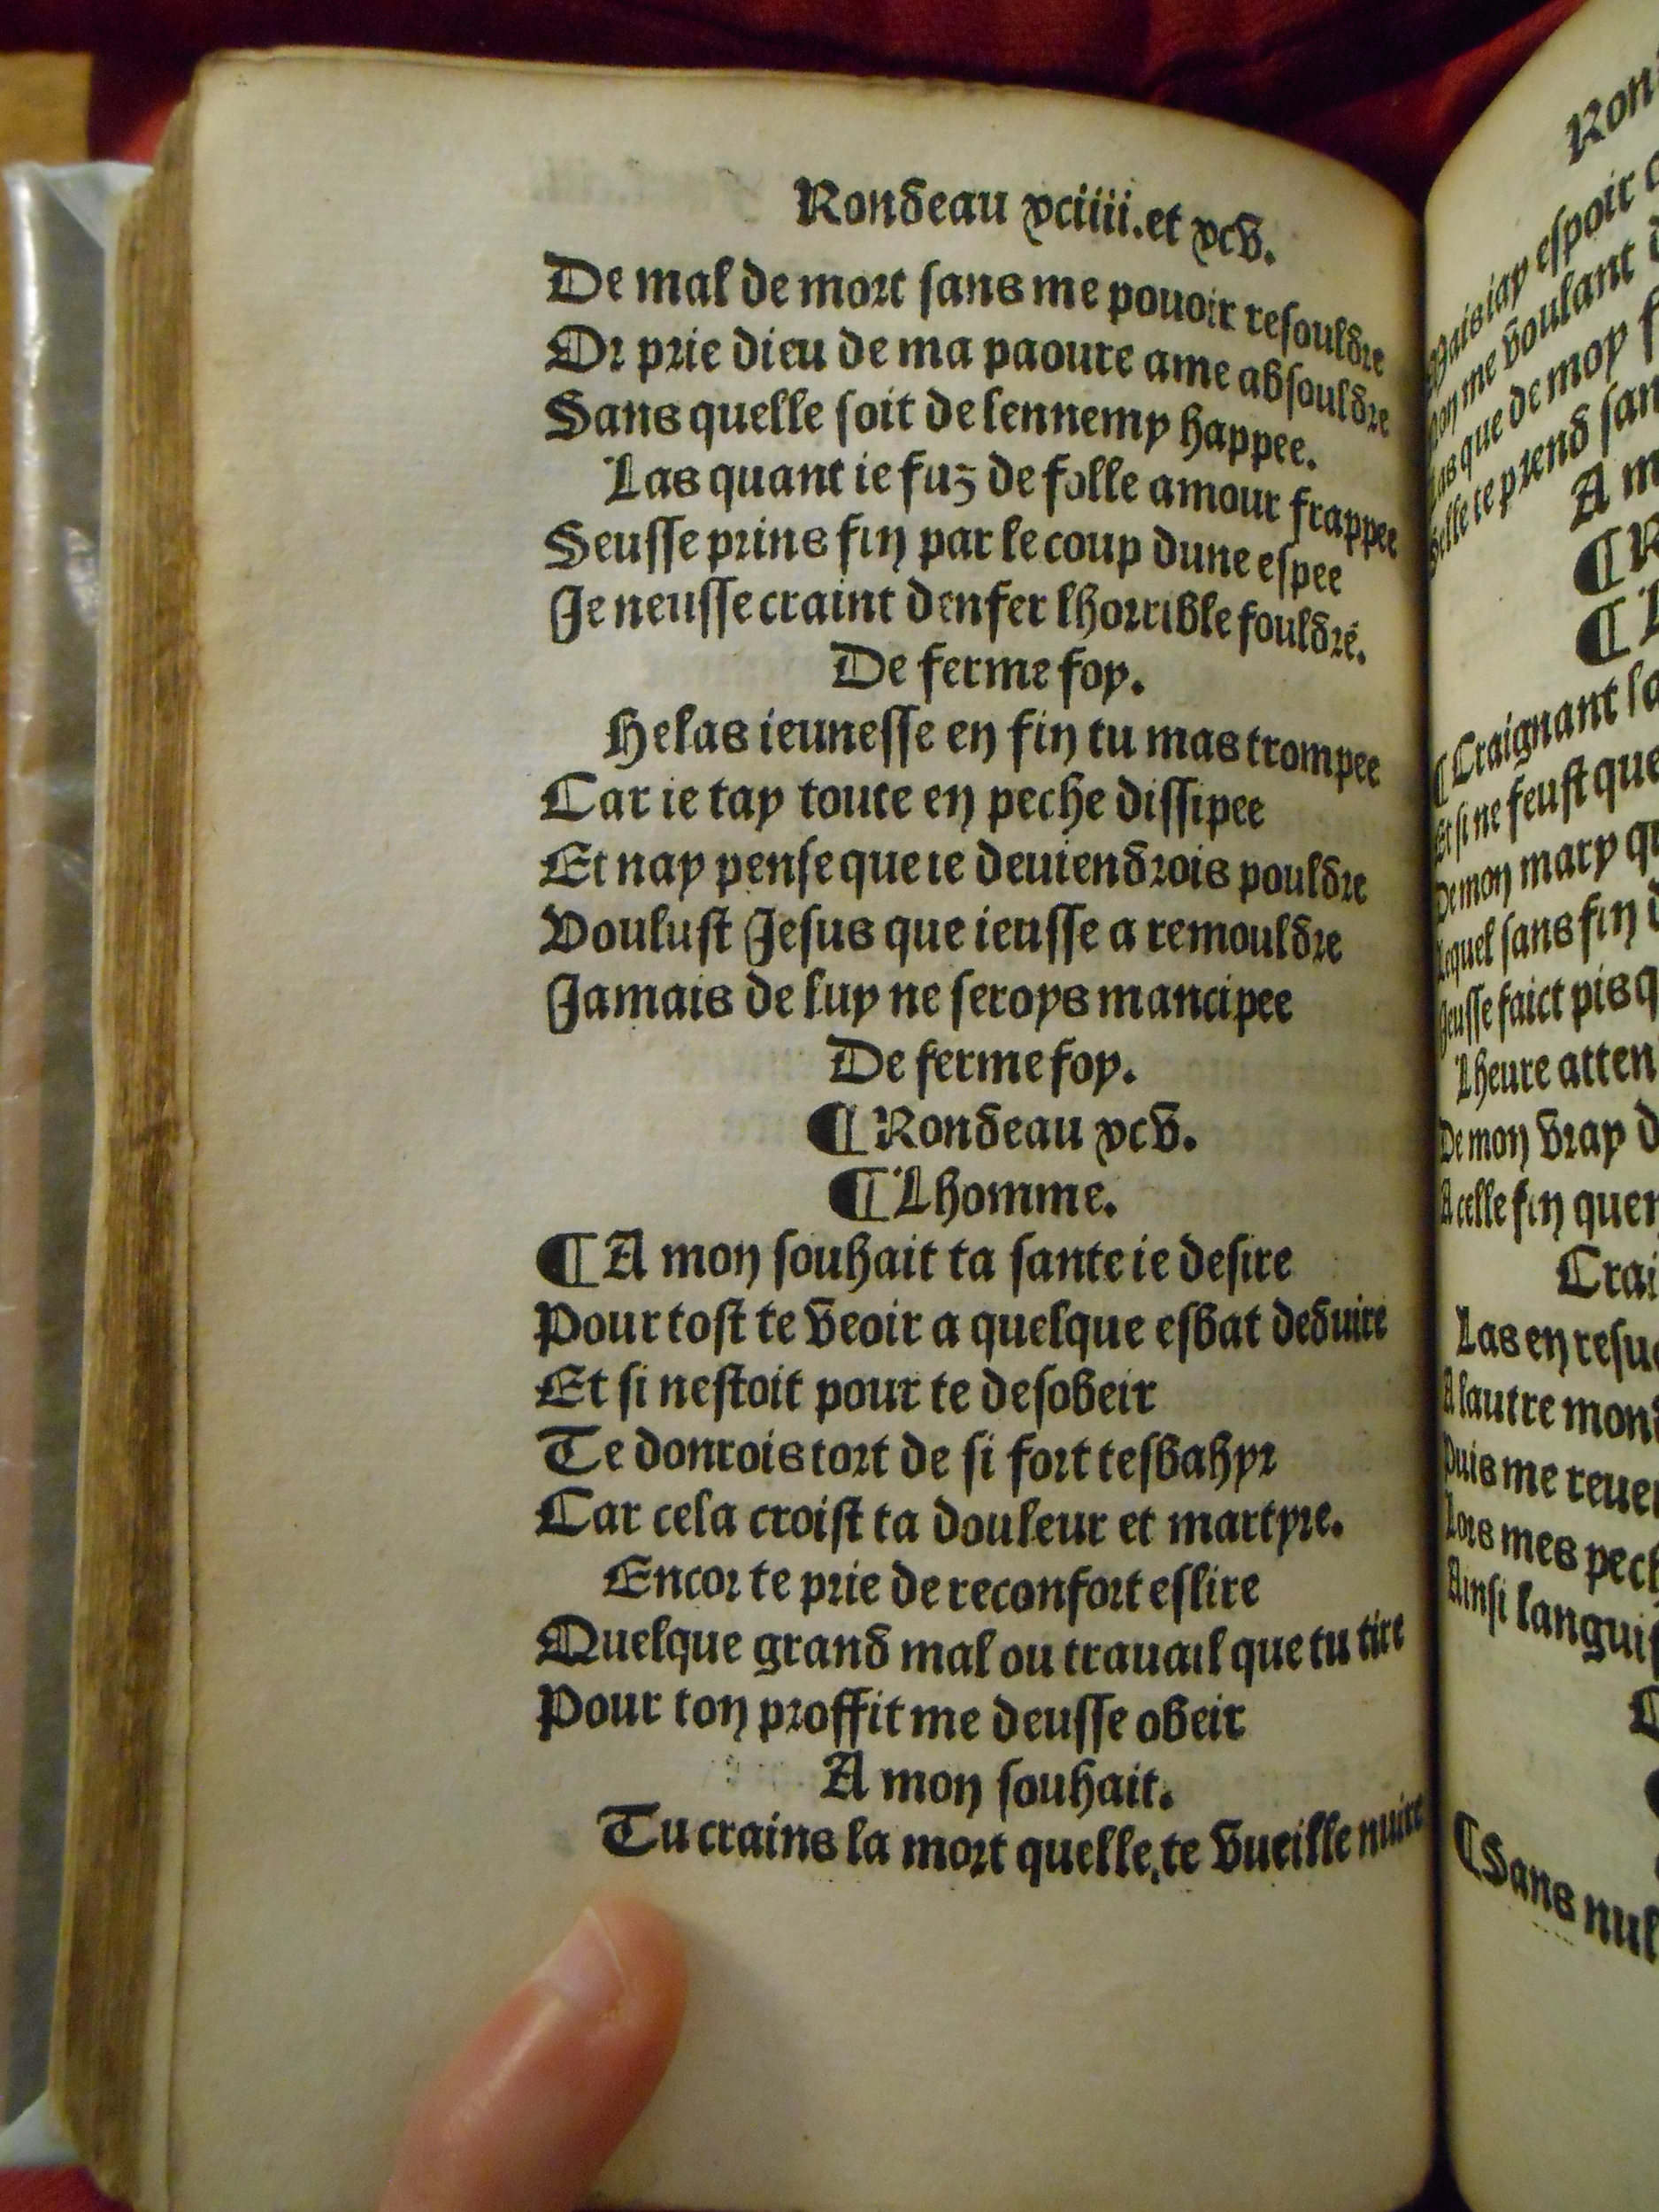 Rondeau xciiii. et xcv.
De mal de mort sans me pouoir resouldre
Or prie dieu de ma paoure ame absouldre
Sans quelle soit de lennemy happee.
Las quant ie fuz de folle amour frappee
Seusse prins fin par le coup dune espee
Je neusse craint denfer lhorrible fouldre.
De ferme foy.
Helas ieunesse en fin tu mas trompee
Car ie tay toute en peche dissipee
Et nay pense que ie deuiendrois pouldre
Voulust Jesus que ieusse a remouldre
Jamais de luy ne seroys mancipee
De ferme foy.
¶ Rondeau xcv.
¶ Lhomme.
¶ A mon souhait ta sante ie desire
Pour tost te veoir a quelque esbat deduire
Et si nestoit pour te desobeir
Te donrois tort de si fort tesbahyr
Car cela croist ta douleur et martyre.
Encor te prie de reconfort eslire
Quelque grand mal ou trauail que tu tire
Pour ton proffit me deusse obeir
A mon souhait.
Tu crains la mort quelle te vueille nuire
Mais iay espoir
me voulant
que de moy
te prend
A
¶
¶
¶ Craignant
Et si ne feust que
De mon mary
Lequel sans fin
Jeusse faict pis
Lheure
De mon vray
A celle fin
Las en
A lautre
Puis me
Lors mes
Ainsi
¶ Sans